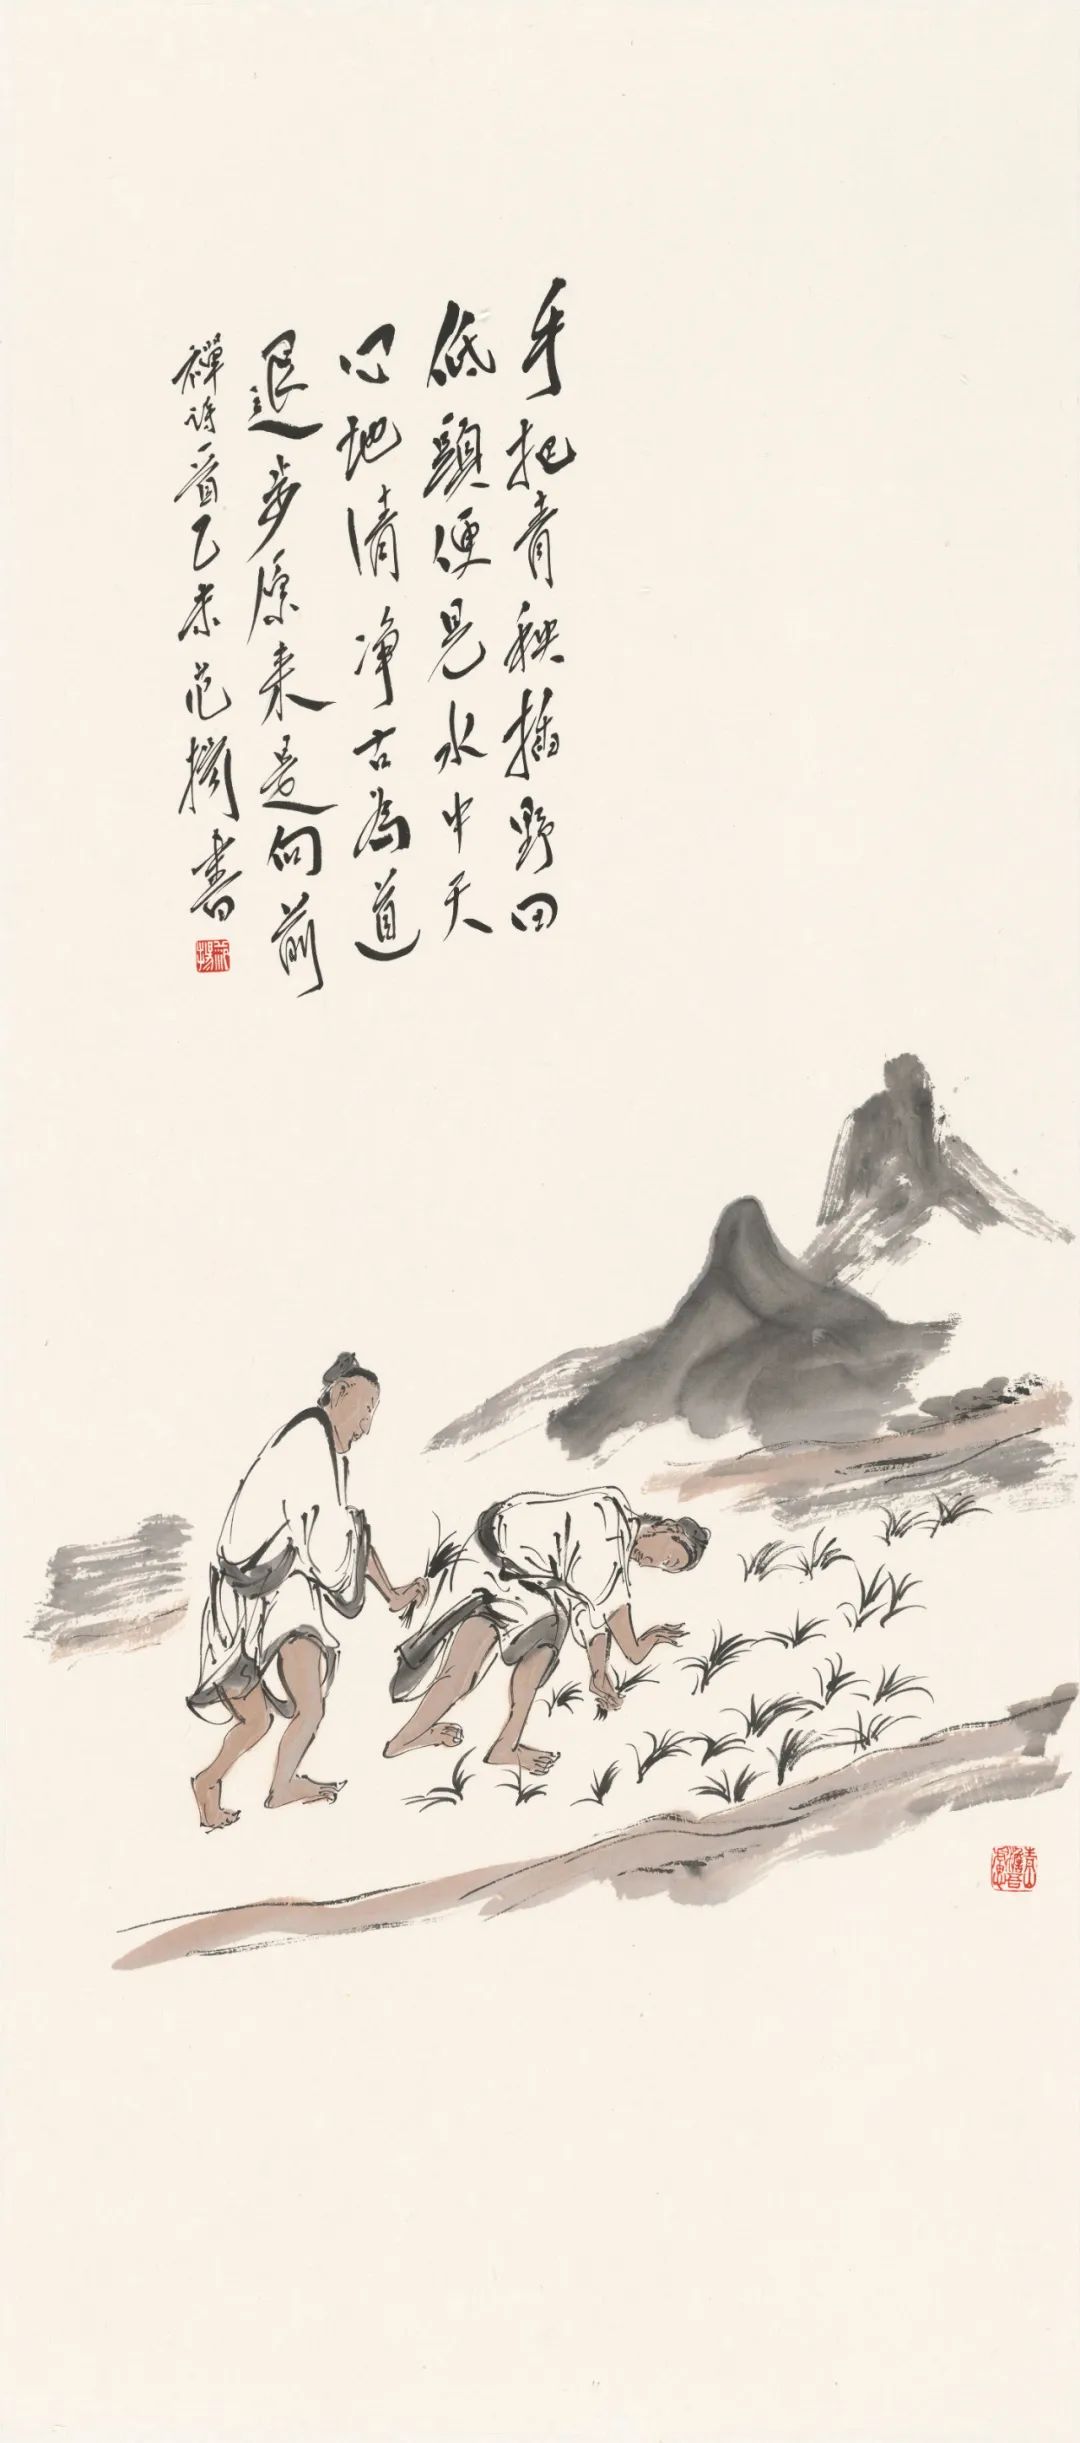 手把青秧插野田
低頭便見水中天
心地清净古為道
退步原来是向前
禪诗一首乙未范揚書